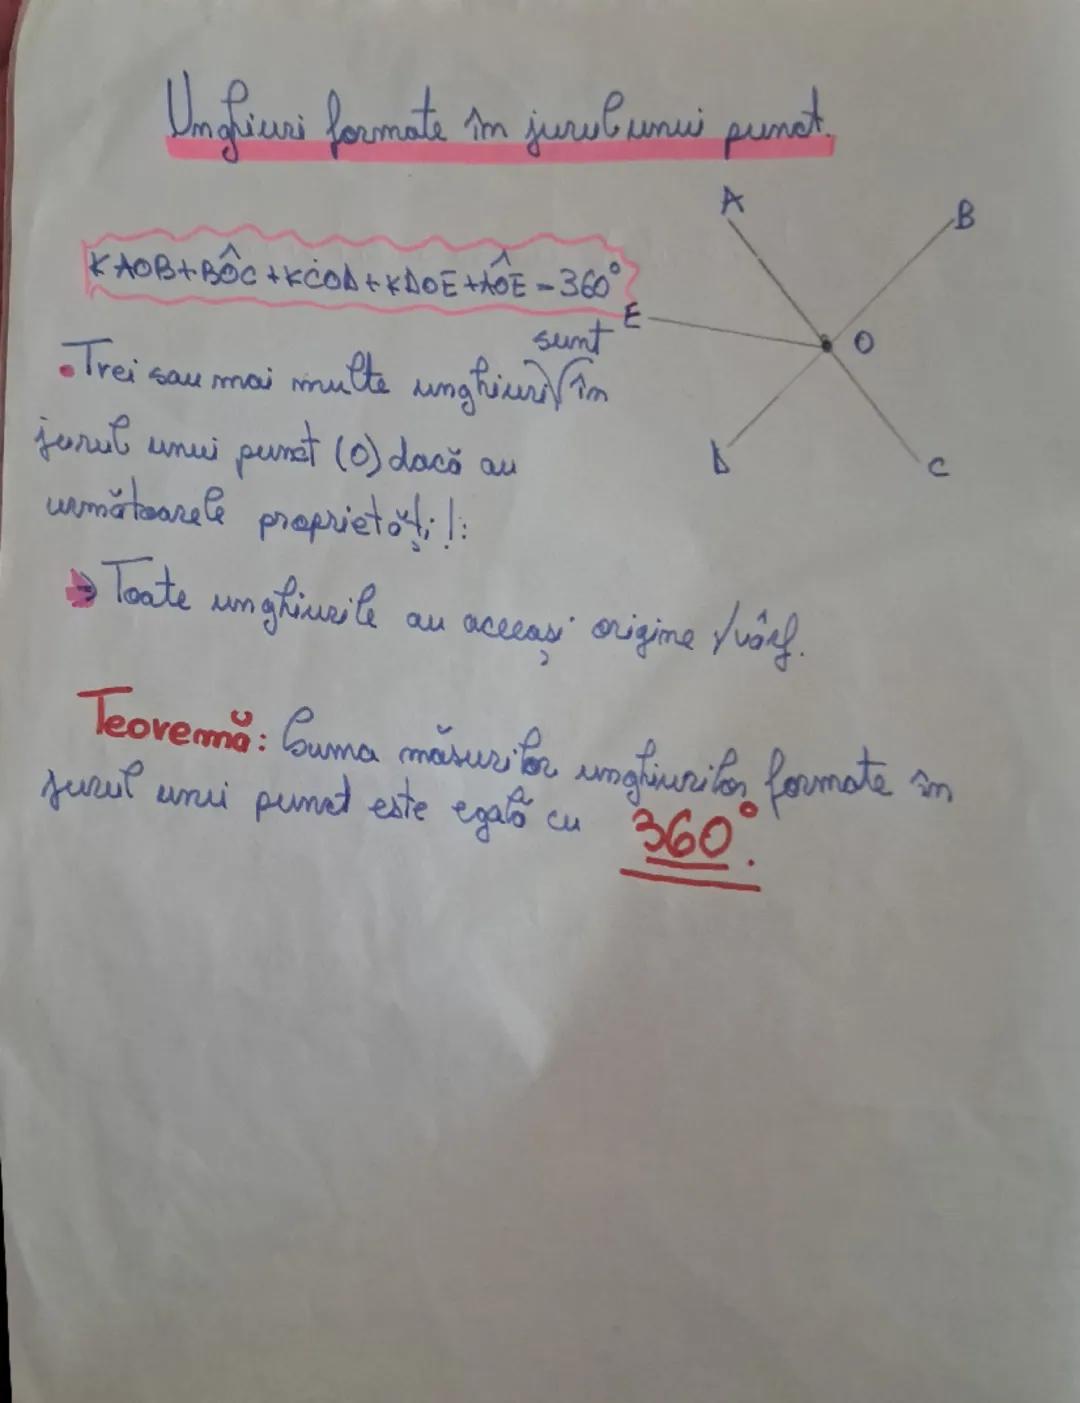 Unghiuri formate în jurul unui punct.
A
B
∢AOB+BÔC+∢COD+∢DOE+AÔE=360°
E
O
sunt
• Trei sau mai multe unghiuri √ în
jurul unui punct (O) dacă au
D
C
următoarele proprietăți!:
→ Toate unghiurile au aceeași origine /vârf.
Teoremă: Suma măsurilor unghiurilor formate în
jurul unui punct este egală cu 360°.